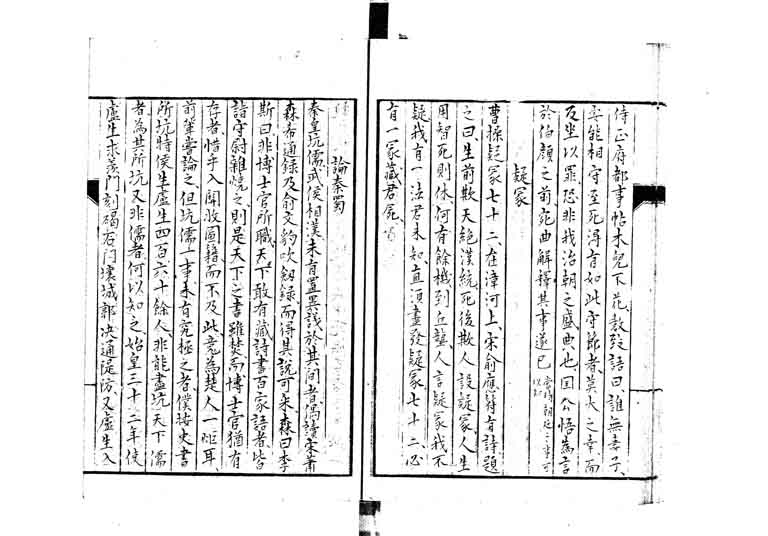 侍正府都事帖木兒下花敎殁語曰誰無妻子
安能相守至死得有如此守節者莫大之幸而
及坐以罪恐非我治朝之盛典也国公悟為言
於伯顏之前宛曲解釋其事遂已
疑冢
曹操疑冢七十二在漳河上宋俞應符有詩題
之曰生前欺天絕漢統死後欺人設疑冢人生
用智死則休何有餘機到丘壟人言疑冢我不
疑我有一法君未知直須盡發疑冢七十二必
有一冢藏君屍
論秦蜀
秦皇坑儒或侯相漢未有置異議於其間者偶讀宋蕭
森希通錄及俞文豹吹劒錄而得其說可采森曰李
斯曰非博士官所職天下敢有藏詩書百家語者皆
詣守尉雜燒之則是天下之書雖焚而博士官猶有
存者惜乎入関收圖籍而不及此竟為楚人一炬耳
前輩嘗論之但坑儒一事未有究極之者僕按史書
所坑特侯生盧生四百六十餘人非能盡坑天下儒
者為其所坑又非儒者何以知之始皇三十二年使
盧生求羨門刻碣石門壞城郭决通隄防又盧生入